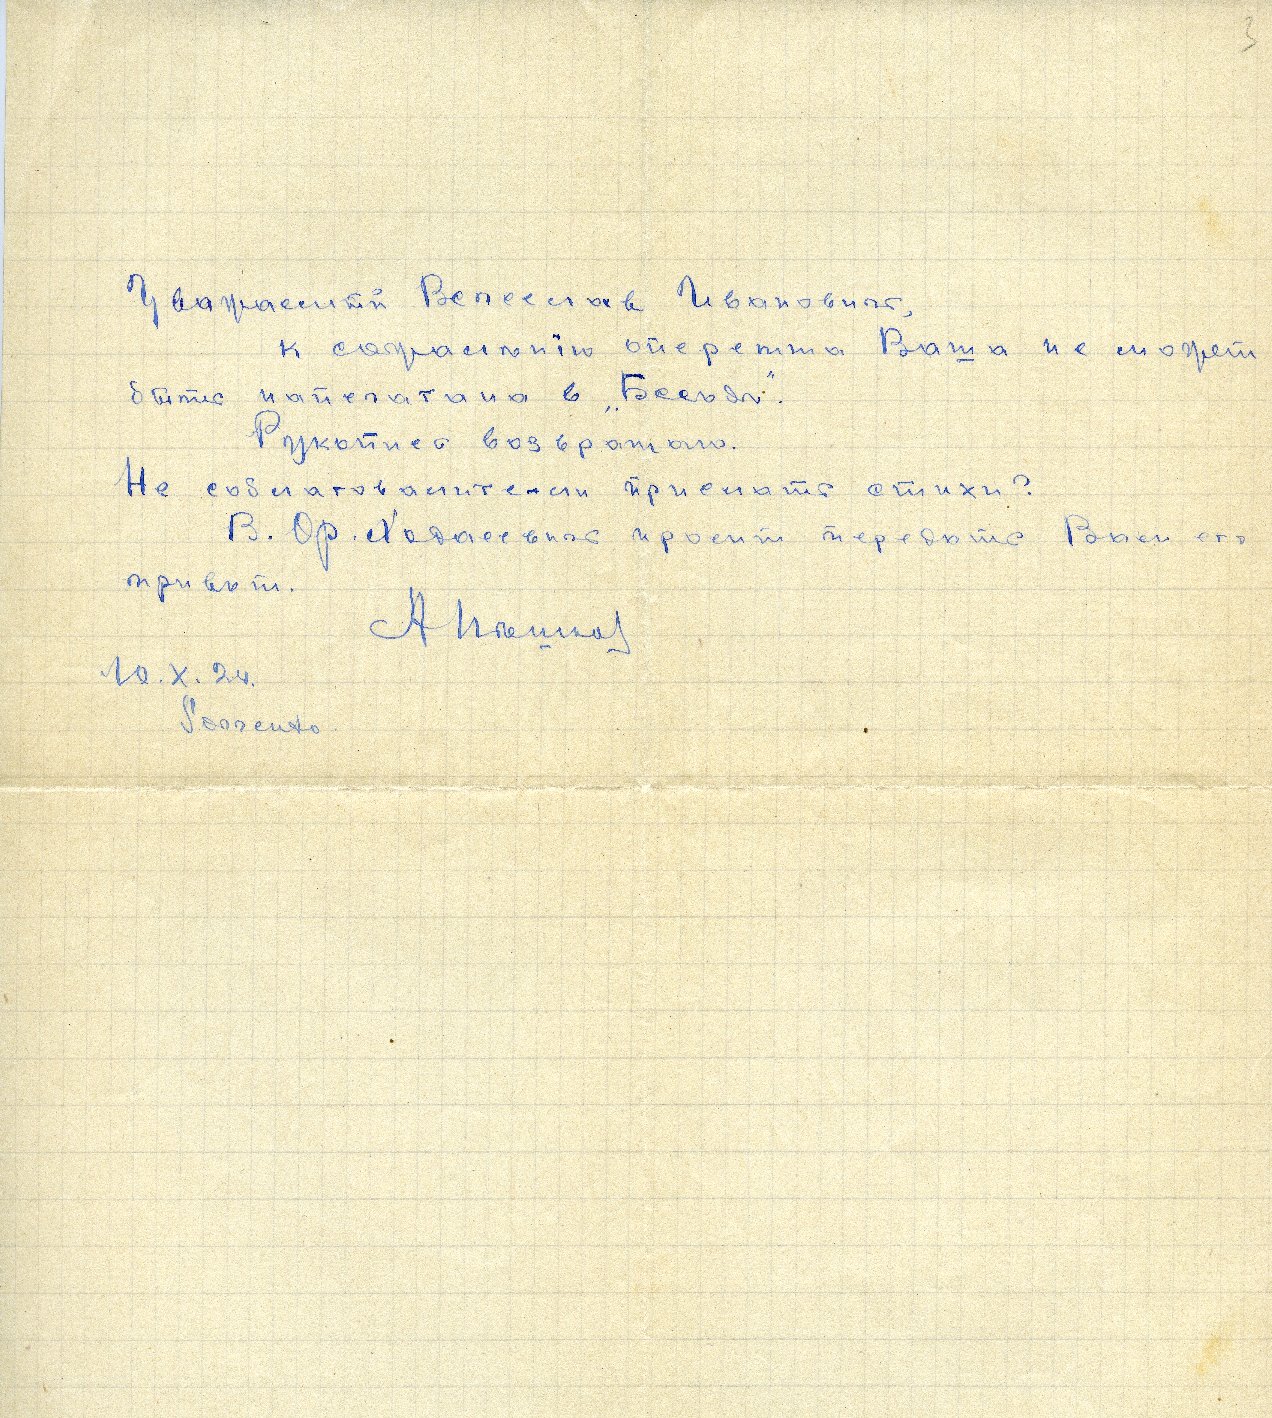 3
Уважаемый Вячеслав Иванович,
к сожалѣнію оперетта Ваша не может
быть напечатана в „Бесѣдѣ".
Рукопись возвращаю.
Не соблаговолите-ли прислать стихи?
В. Ф. Ходасевич просит передать Вам его
привѣт.
А Пѣшков
10.X.24.
Sorrento.